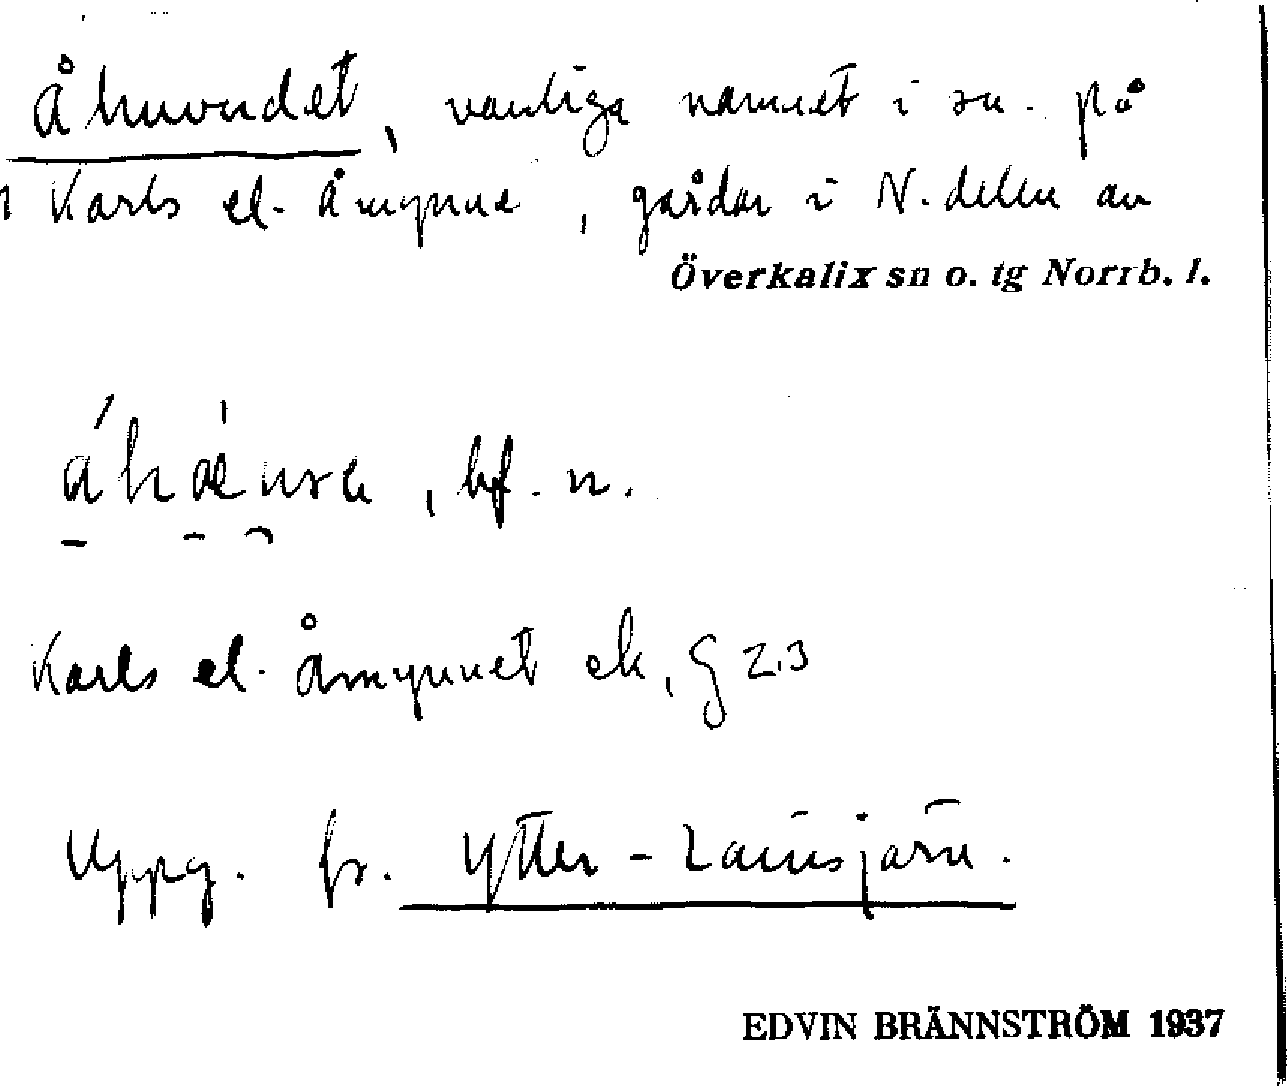 Åhuvudet, vanliga namnet i sn. på
Karls el. Åmynne, gårdar i N. delen av
Överkalix sn o. tg Norrb. l.
, bf. n.
Karls el. Åmynnet ek, G 23
Uppg. fr. Ytter-Lainsjärv.
EDVIN BRÄNNSTRÖM 1937